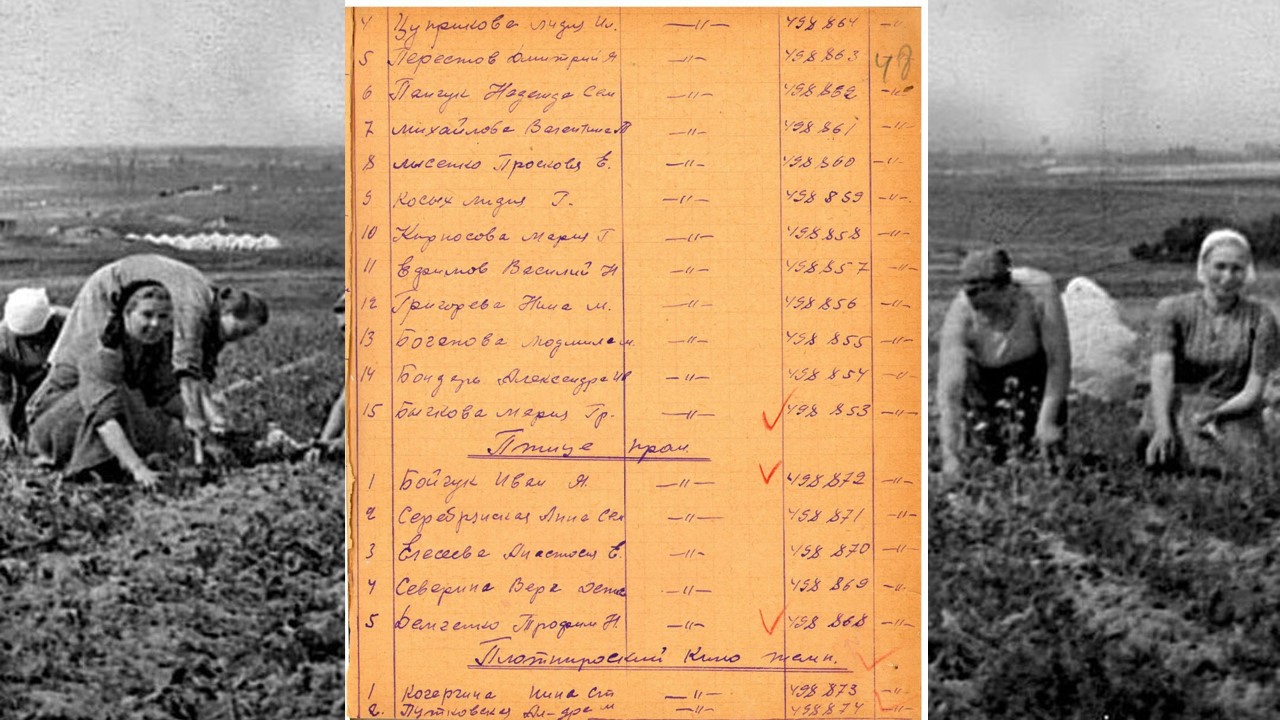 4 Цуприкова Лидия Ил. —"— 498864 —"
5 Перестов Дмитрий Я —"— 498863 48
6 Панчук Надежда Сем —"— 498862 —"—
7 Михайлова Валентина П —"— 498861 —"—
8 Лысенко Просковя Е. —"— 498860 —"—
9 Косых Лидия Г. —"— 498859 —"—
10 Мария Г —"— 498858 —"—
11 Ефримов Василий Н —"— 498857 —"—
12 Григорева Нина М. —"— 498856 —"—
13 Боганова Людмила М. —"— 498855 —"—
14 Бондарь Александра Ив —"— 498854 —"—
15 Бычкова Мария Гр. —"— 498853 —"—
Птице пром.
1 Бойчук Иван Я. —"— 498872 —"—
2 Серебрянская Анна Сем —"— 498871 —"—
3 Елесеева Анастасия Е. —"— 498870 —"—
4 Северина Вера Дени —"— 498869 —"—
5 Демченко Трофим Н. —"— 498868 —"—
Кино
1 Кочергина Нина Ст —"— 498873 —"—
2. Путковская Ал-дра М 498874 —"—